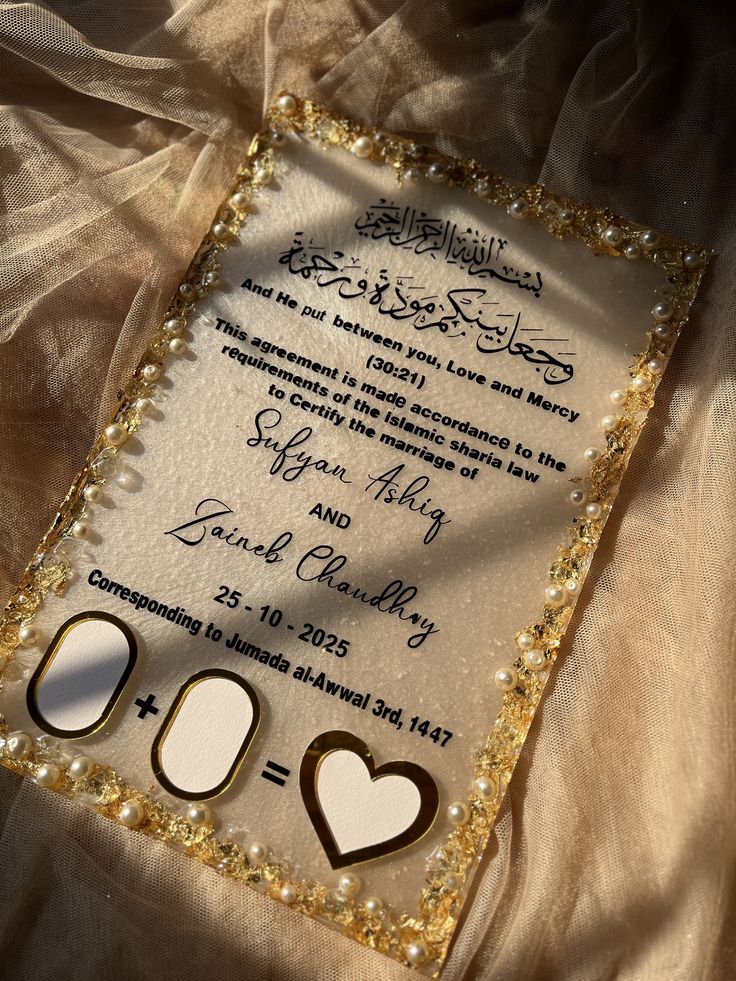 بسم الله الرحمن الرحيم
وجعل بينكم مودة ورحمة
And He put between you, Love and Mercy
(30:21)
This agreement is made accordance to the
requirements of the Islamic sharia law
to Certify the marriage of
Sufyan Ashiq
AND
Zaineb Chaudhay
25 - 10 - 2025
Corresponding to Jumada al-Awwal 3rd, 1447
+ =